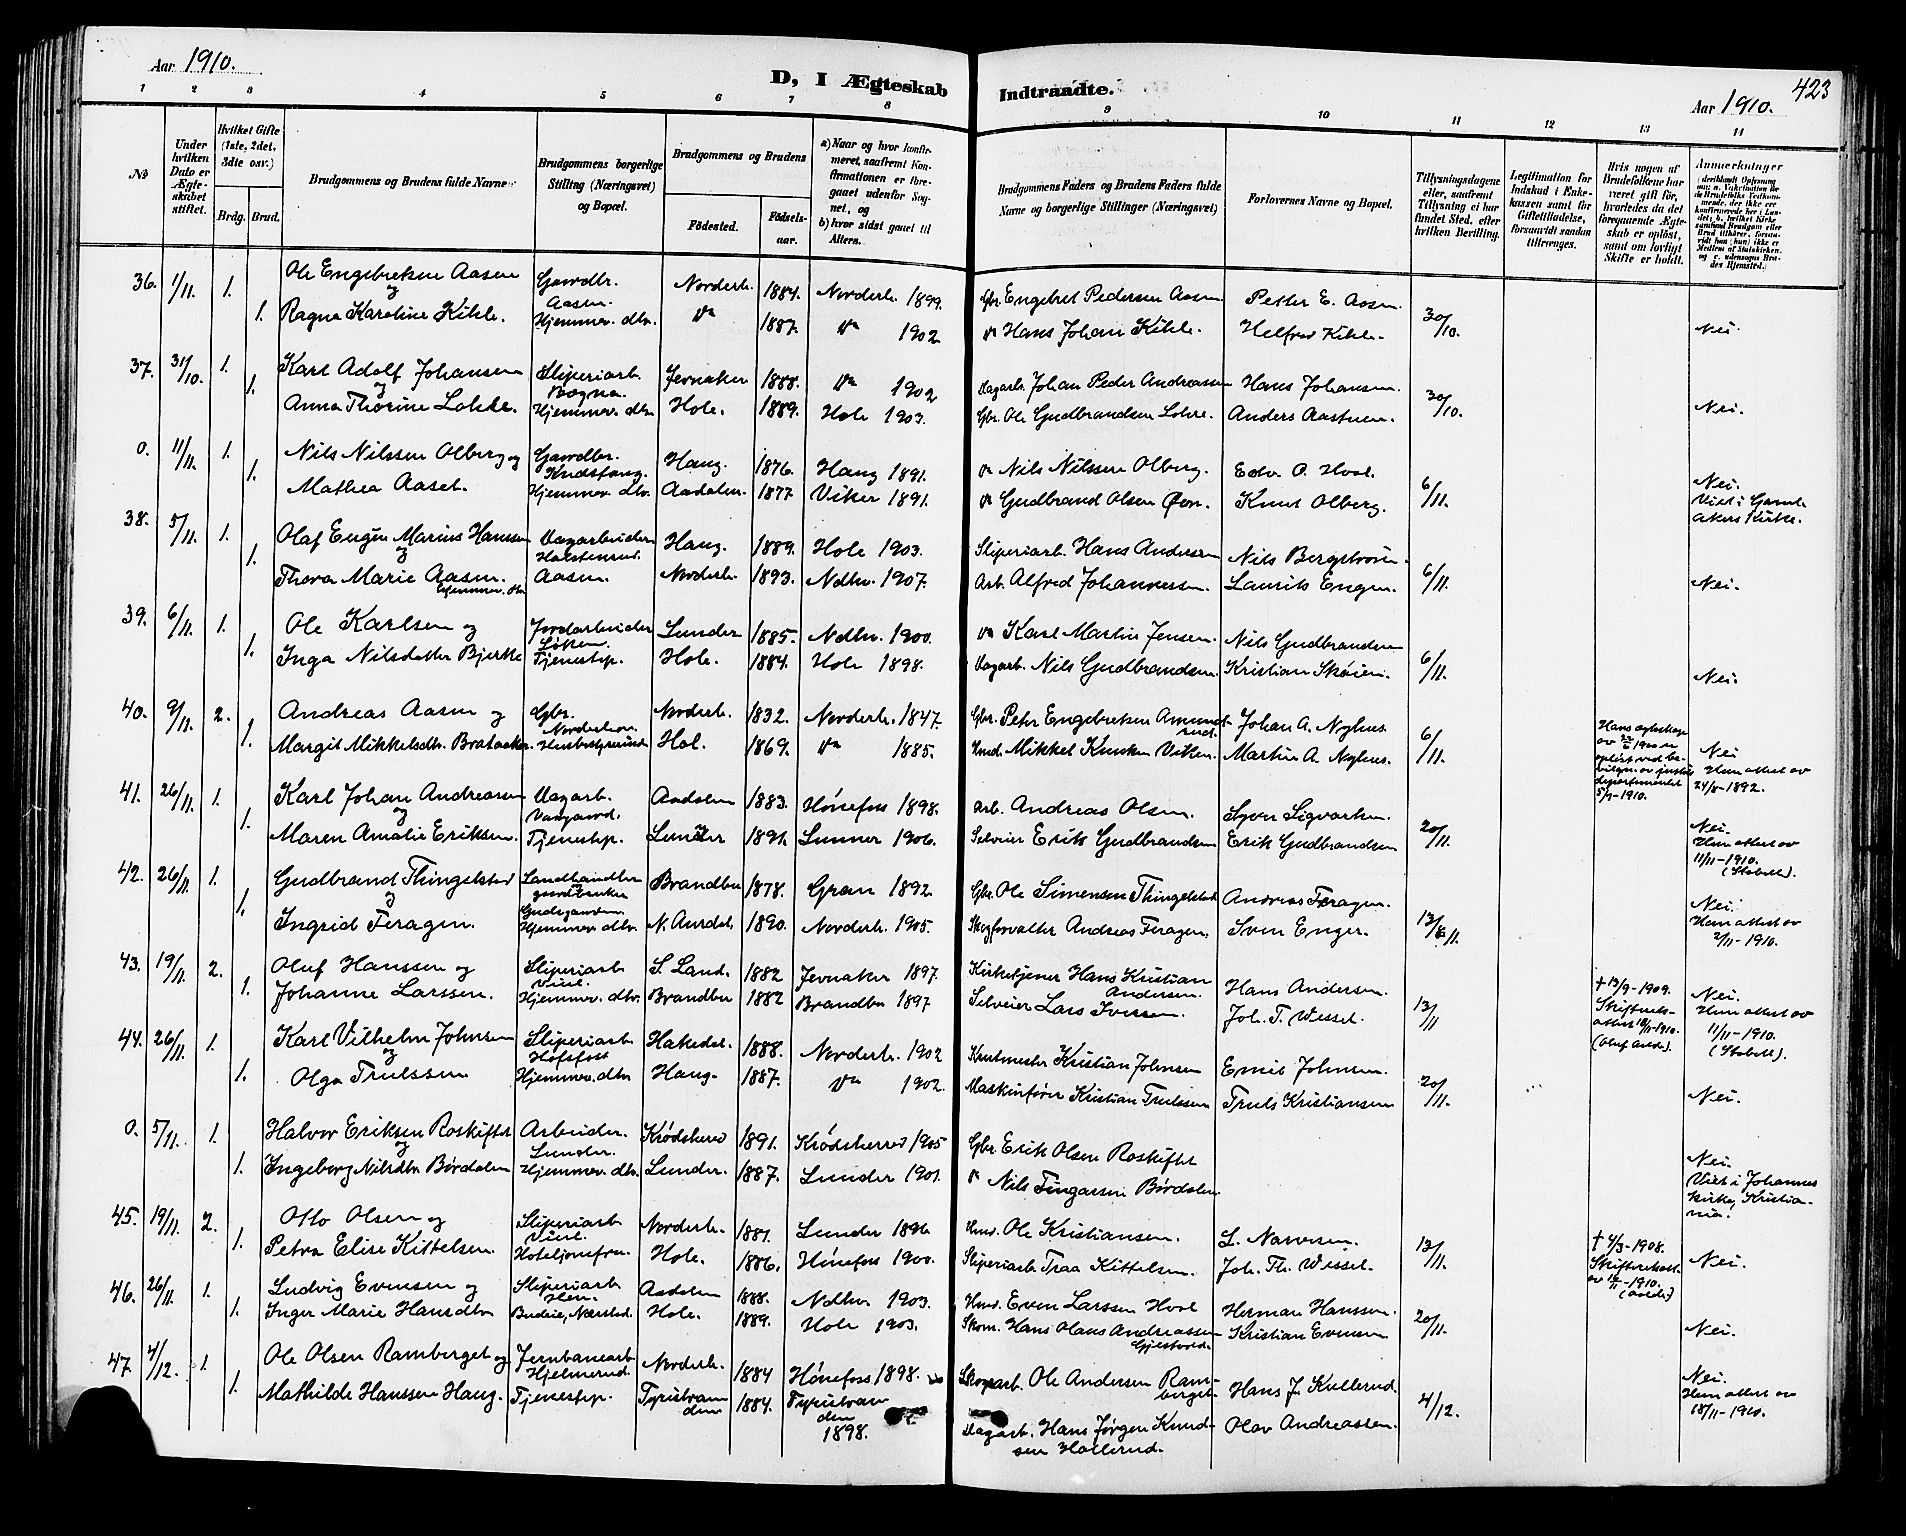 Aar 1910.
D, I Ægteskab
Indtraadte.
423
Aar 1910.
1 2 3 4 5 6 7 8 9 10 11 12 13 14
No
Under hvilken Dato er Ægteskabet stiftet.
Hvilket Gifte (1ste, 2det, 3die osv.)
Brdg. Brud.
Brudgommens og Brudens fulde Navne
Brudgommens borgerlige Stilling (Næringsvei) og Bopæl.
Brudgommens og Brudens
Födested. Födselsaar.
a) Naar og hvor konfirmeret, saafremt Konfirmationen er foregaaet udenfor Sognet, og b) hvor sidst gaaet til Alters.
Brudgommens Faders og Brudens Faders fulde Navne og borgerlige Stillinger (Næringsvei)
Forlovernes Navne og Bopæl.
Tillysningsdagene eller, saafremt Tillysning ei har fundet Sted, efter hvilken Bevilling.
Legitimation for Indskud i Enkekassen samt for Giftetilladelse, forsaavidt saadan tiltrænges.
Hvis nogen af Brudefolkene har været gift för, hvorledes da det foregaaende Ægteskab er oplöst, samt om lovligt Skifte er holdt.
Anmærkninger
36. 1/11. 1. Ole Engebretsen Aasen Gaardbr. Norderh. 1884. Norderh. 1899. Gbr. Engebret Pedersen Aasen Petter E. Aasen 30/10.
og Aasen.
1. Ragna Karoline Kihle. Hjemmev. dtr. do 1887. do 1902 do Hans Johan Kihle. Helfred Kihle. Nei.
37. 31/10. 1. Karl Adolf Johansen Sliperiarb. Jevnaker 1888. do 1902 Dagarb. Johan Peder Andreassen Hans Johansen. 30/10.
og
1. Anna Thorine Lohre. Hjemmev. dtr. Hole. 1889. Hole 1903. Gbr. Ole Gudbrandsen Lohre. Anders Aastuen. Nei.
0. 11/11. 1. Nils Nilssen Olberg og Gaardbr. Haug. 1876. Haug 1891. do Nils Nilssen Olberg. Edv. O. Hval. 6/11.
1. Mathea Aaset. Hjemmev. dtr. Aadalen. 1877. Viker 1891. do Gudbrand Olsen Knut Olberg. Nei.
Viet i Gamle Akers Kirke.
38. 5/11. 1. Olaf Eugen Marius Hanssen Dagarbeider Haug. 1889. Hole 1903. Sliperiarb. Hans Andersen Nils Bergstrøm. 6/11.
og
1. Thora Marie Aasen. Hjemmev. dtr. Aasen. Norderh. 1893. Ndhv. 1907. Arb. Alfred Johannessen. Laurits Engen. Nei.
39. 6/11. 1. Ole Karlsen og Jordarbeider Lunder 1885. Ndhv. 1900. do Karl Martin Jensen. Nils Gudbrandsen 6/11.
Løken.
1. Inga Nilsdatter Bjerke Tjenestep. Hole. 1884. Hole 1898. Dagarb. Nils Gudbrandsen. Kristian Skøien. Nei.
40. 9/11. 2. Andreas Aasen og Gbr. Norderh. 1832. Norderh. 1847. Gbr. Peter Engebretsen Amundrud. Johan A. Nyhus. 6/11.
Norderhov.
1. Margit Mikkelsdtr. Brataaker. Husbestyrerinde Hol. 1869. do 1885. Hmd. Mikkel Knutsen Viken. Martin A. Nyhus.
Hans egteskap av 22/6 1900 er opløst ved bevilgn. av justisdepartementet 5/9-1910.
Nei
Hem attest av 24/8-1892.
41. 26/11. 1. Karl Johan Andreasen Dagarb. Aadalen 1883. Hønefoss 1898. Arb. Andreas Olsen. Syver Sigvartsen 20/11.
1. Maren Amalie Eriksen. Tjenestep. Lunder 1891. Lunner 1906. Selveier Erik Gudbrandsen Erik Gudbrandsen
Nei.
Hem attest av 11/11-1910.
(Stabell).
42. 26/11. 1. Gudbrand Thingelstad Landhandler Brandbu 1878. Gran 1892 Gbr. Ole Simensen Thingelstad Andreas Feragen. 13/11.
og gaardbruker
1. Ingrid Feragen. Hjemmev. dtr. N. Aurdal. 1890. Norderh. 1905. Skogforvalter Andreas Feragen. Sven Enger.
Nei.
Hem attest av 2/11-1910.
43. 19/11. 2. Oluf Hanssen og Sliperiarb. S. Land. 1882 Jevnaker 1897. Kirketjener Hans Kristian Andersen. Hans Andersen. 13/11
1. Johanne Larssen. Hjemmev. dtr. Brandbu 1882 Brandbu 1897 Selveier Lars Iverssen. Joh. T. Wessel.
† 13/9-1909.
(Oluf Aalde).
Nei.
Hem attest av 11/11-1910.
(Stabell).
44. 26/11. 1. Karl Vilhelm Johnsen Sliperiarb. Hakedal. 1888. Norderh. 1902 Krutmester Kristian Johnsen Emil Johnsen. 20/11.
og Hofsfoss
1. Olga Trulssen Hjemmev. dtr. Haug. 1887. do 1902. Maskinfører Kristian Trulssen Truls Kristiansen Nei.
0. 5/11. 1. Halvor Eriksen Roskiftet Arbeider. Krødsherred 1891. Krødsherred 1905 Gbr. Erik Olsen Roskiftet
og Lunder.
1. Ingeborg Nilsdtr. Børdalen Hjemmev. dtr. Lunder. 1887. Lunder 1901. do Nils Fingarsen Børdalen
Nei.
Viet i Johannes kirke, Kristiania.
45. 19/11. 2. Otto Olsen og Sliperiarb. Norderh. 1881. Lunder 1896 Hmd. Ole Kristiansen. L. Narvesen. 13/11.
1. Petra Elise Kittelsen. Hoteljomfru Hole. 1886. Hønefoss 1900. Sliperiarb. Traa Kittelsen. Joh. Th. Wessel.
† 4/3-1908.
Nei.
46. 26/11. 1. Ludvig Evensen og Sliperiarb. Aadalen 1888. Ndhv. 1903. Hmd. Even Larssen Hval Herman Hanssen. 20/11.
Hen.
1. Inger Marie Hansdtr. Budeie, Nærstad. Hole. 1889. Hole 1903. Skom. Hans Olaus Andreassen Gjelstvold. Kristian Evensen Nei.
47. 4/12. 1. Ole Olsen Ramberget og Jernbanearb. Norderh. 1884 Hønefoss 1898. Skogsarb. Ole Andersen Ramberget. Hans J. Kullerud. 4/12.
Hjelmerud.
1. Mathilde Hanssen Haug. Tjenestep. Tyristranden 1884. Tyristranden 1898. Dagarb. Hans Jørgen Knudsen Hollerud. Olav Andreassen.
Nei.
Hem attest av 18/11-1910.